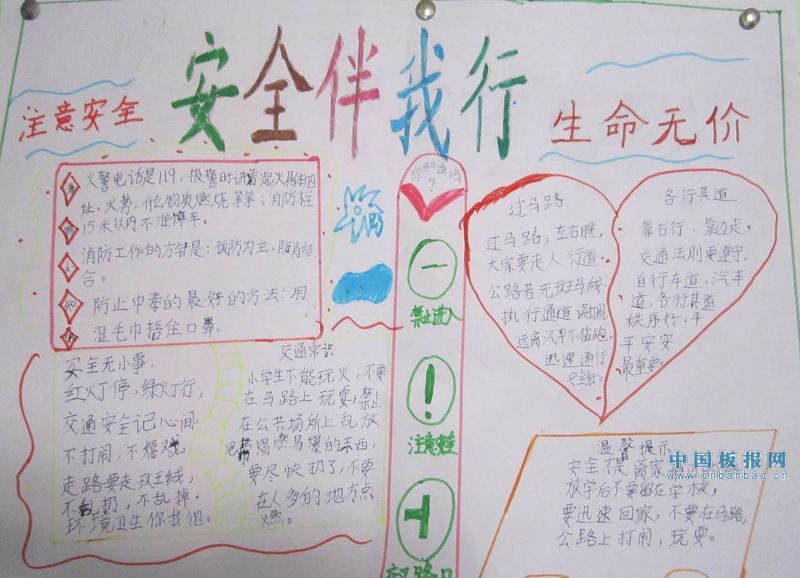 安全伴我行
注意安全
生命无价
火警电话是119,报警时讲着起火具体地
址,火势,什么物质燃烧等等;消防栓
15米以内不准停车。
消防工作的方针是:预防为主,防消结
合。
防止中毒的最好的方法:用
湿毛巾捂住口鼻。
安全无小事,
红灯停,绿灯行,
交通安全记心间
不打闹,不嬉戏
走路要走斑马线,
不乱扔,不乱掉。
环境卫生你我他。
交通常识
小学生不能玩火,不要
在马路上玩耍,禁止
在公共场所上乱放
易燃易爆的东西,
要尽快扔了,不要
在人多的地方点
燃。
你知道吗
?
禁止进入
!
注意
过马路
过马路,左右瞧,
大家要走人行道。
公路若无斑马线,
执行通道
远离汽车不
迅速通行
各行其道
靠右行、靠边走,
交通法则要遵守。
自行车道,汽车
道,各行其道
秩序好,平
平安安
最重要。
温馨提示
安全
放学后不要留在学校,
要迅速回家,不要在马路,
公路上打闹,玩耍。
中国板报网
www.cnbanbao.cn